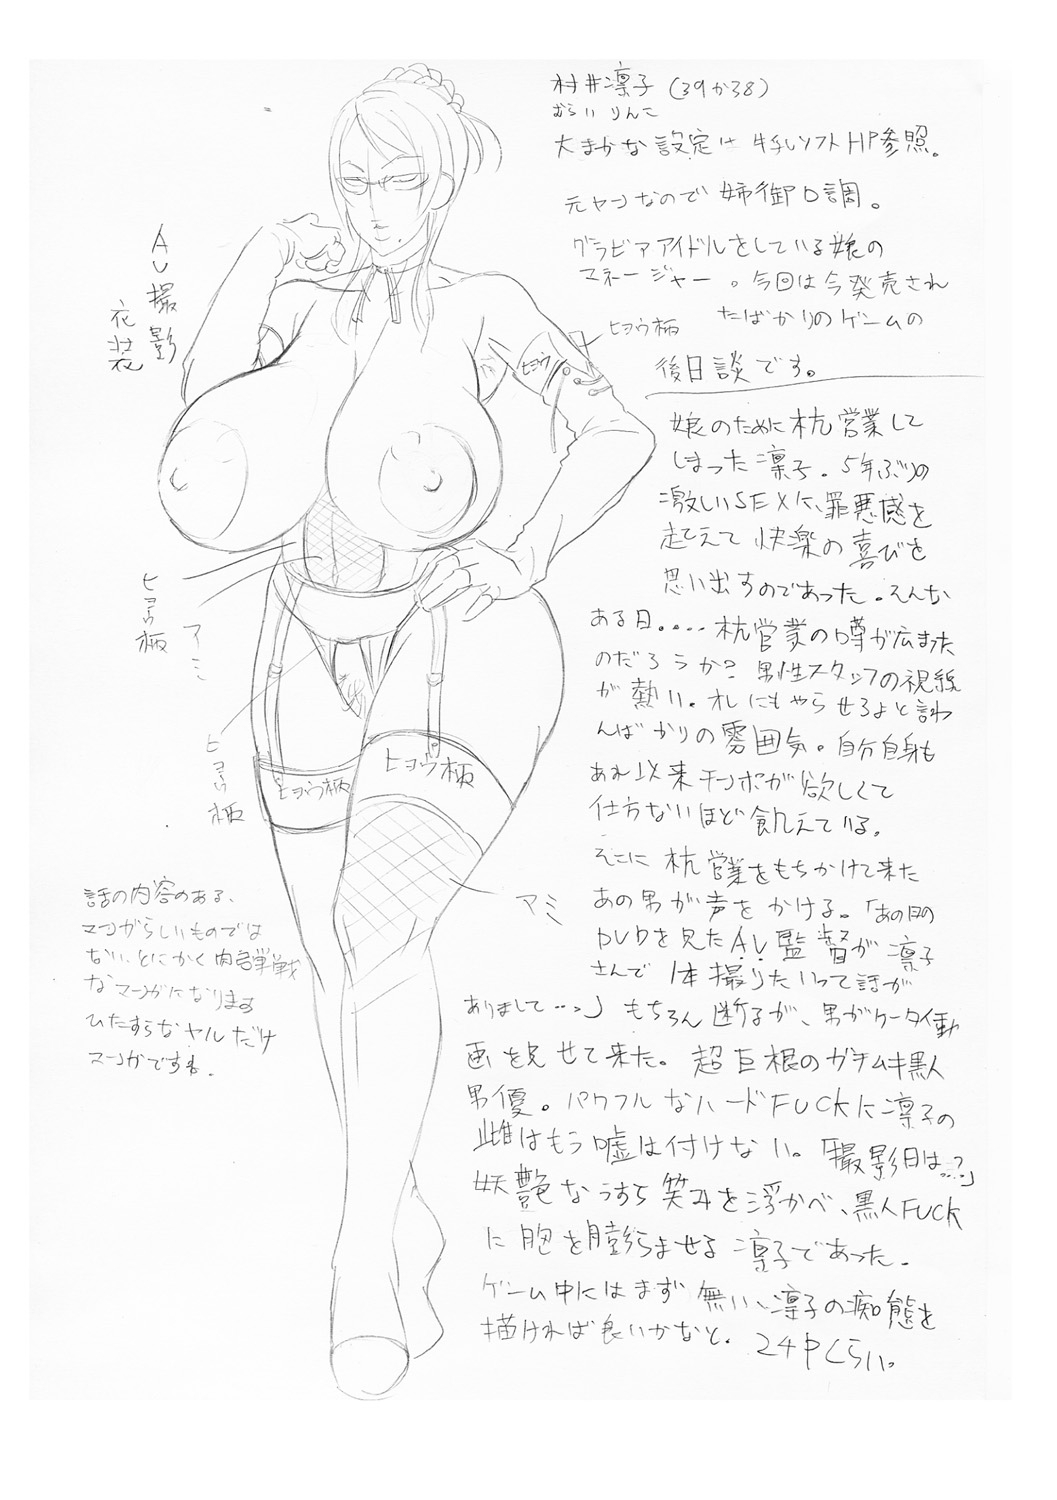 村井凛子(39か38)
むらい りんこ
大まかな設定は 牛乳ソフトHP参照。
元ヤンなので 姉御口調。
グラビアアイドルをしている娘の
マネージャー。今回は今発売され
たばかりのゲームの
後日談です。
娘のために枕営業して
しまった凛子。5年ぶりの
激しいSEXに、罪悪感を
超えて 快楽の喜びを
思い出すのであった。そんな
ある日....枕営業の噂が広まった
のだろうか? 男性スタッフの視線
が熱い。オレにもやらせろよと言わ
んばかりの雰囲気。自分自身も
あれ以来チンポが欲しくて
仕方ないほど飢えている。
そこに 枕営業をもちかけて来た
あの男が声をかける。「あの日の
DVDを見たAV監督が 凛子
さんで 1本撮りたいって話が
ありまして…」もちろん断るが、男がケータイ動
画を見せて来た。超巨根のガチムキ黒人
男優。パワフルなハードFUCKに凛子の
雌はもう嘘は付けない。「撮影日は…?」
妖艶なうすら笑みを浮かべ、黒人FUCK
に胸を膨らませる 凛子であった。
ゲーム中にはまず無い、凛子の痴態を
描ければ良いかなと。24Pくらい。
AV撮影
衣装
ヒョウ柄
ヒョウ
ヒョウ柄
アミ
ヒョウ柄
ヒョウ柄
ヒョウ柄
アミ
話の内容のある、
マンガらしいものでは
ない、とにかく肉弾戦
なマンガになります
ひたすらなヤルだけ
マンガですね。